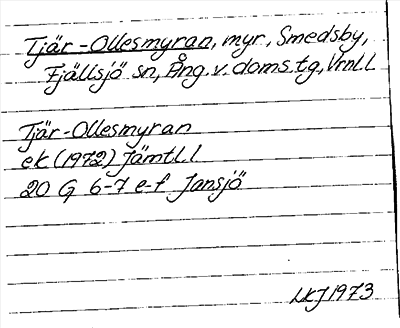 Tjär-Ollesmyran, myr, Smedsby,
Fjällsjö sn, Ång. v. doms.tg, Vrnl.l
Tjär-Ollesmyran
ek (1972) Jämtl.l
20 G 6-7 e-f Jansjö
LKJ 1973